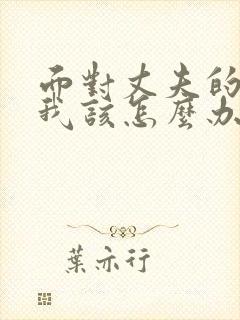 而對丈夫的
我該怎麼办
葉亦行